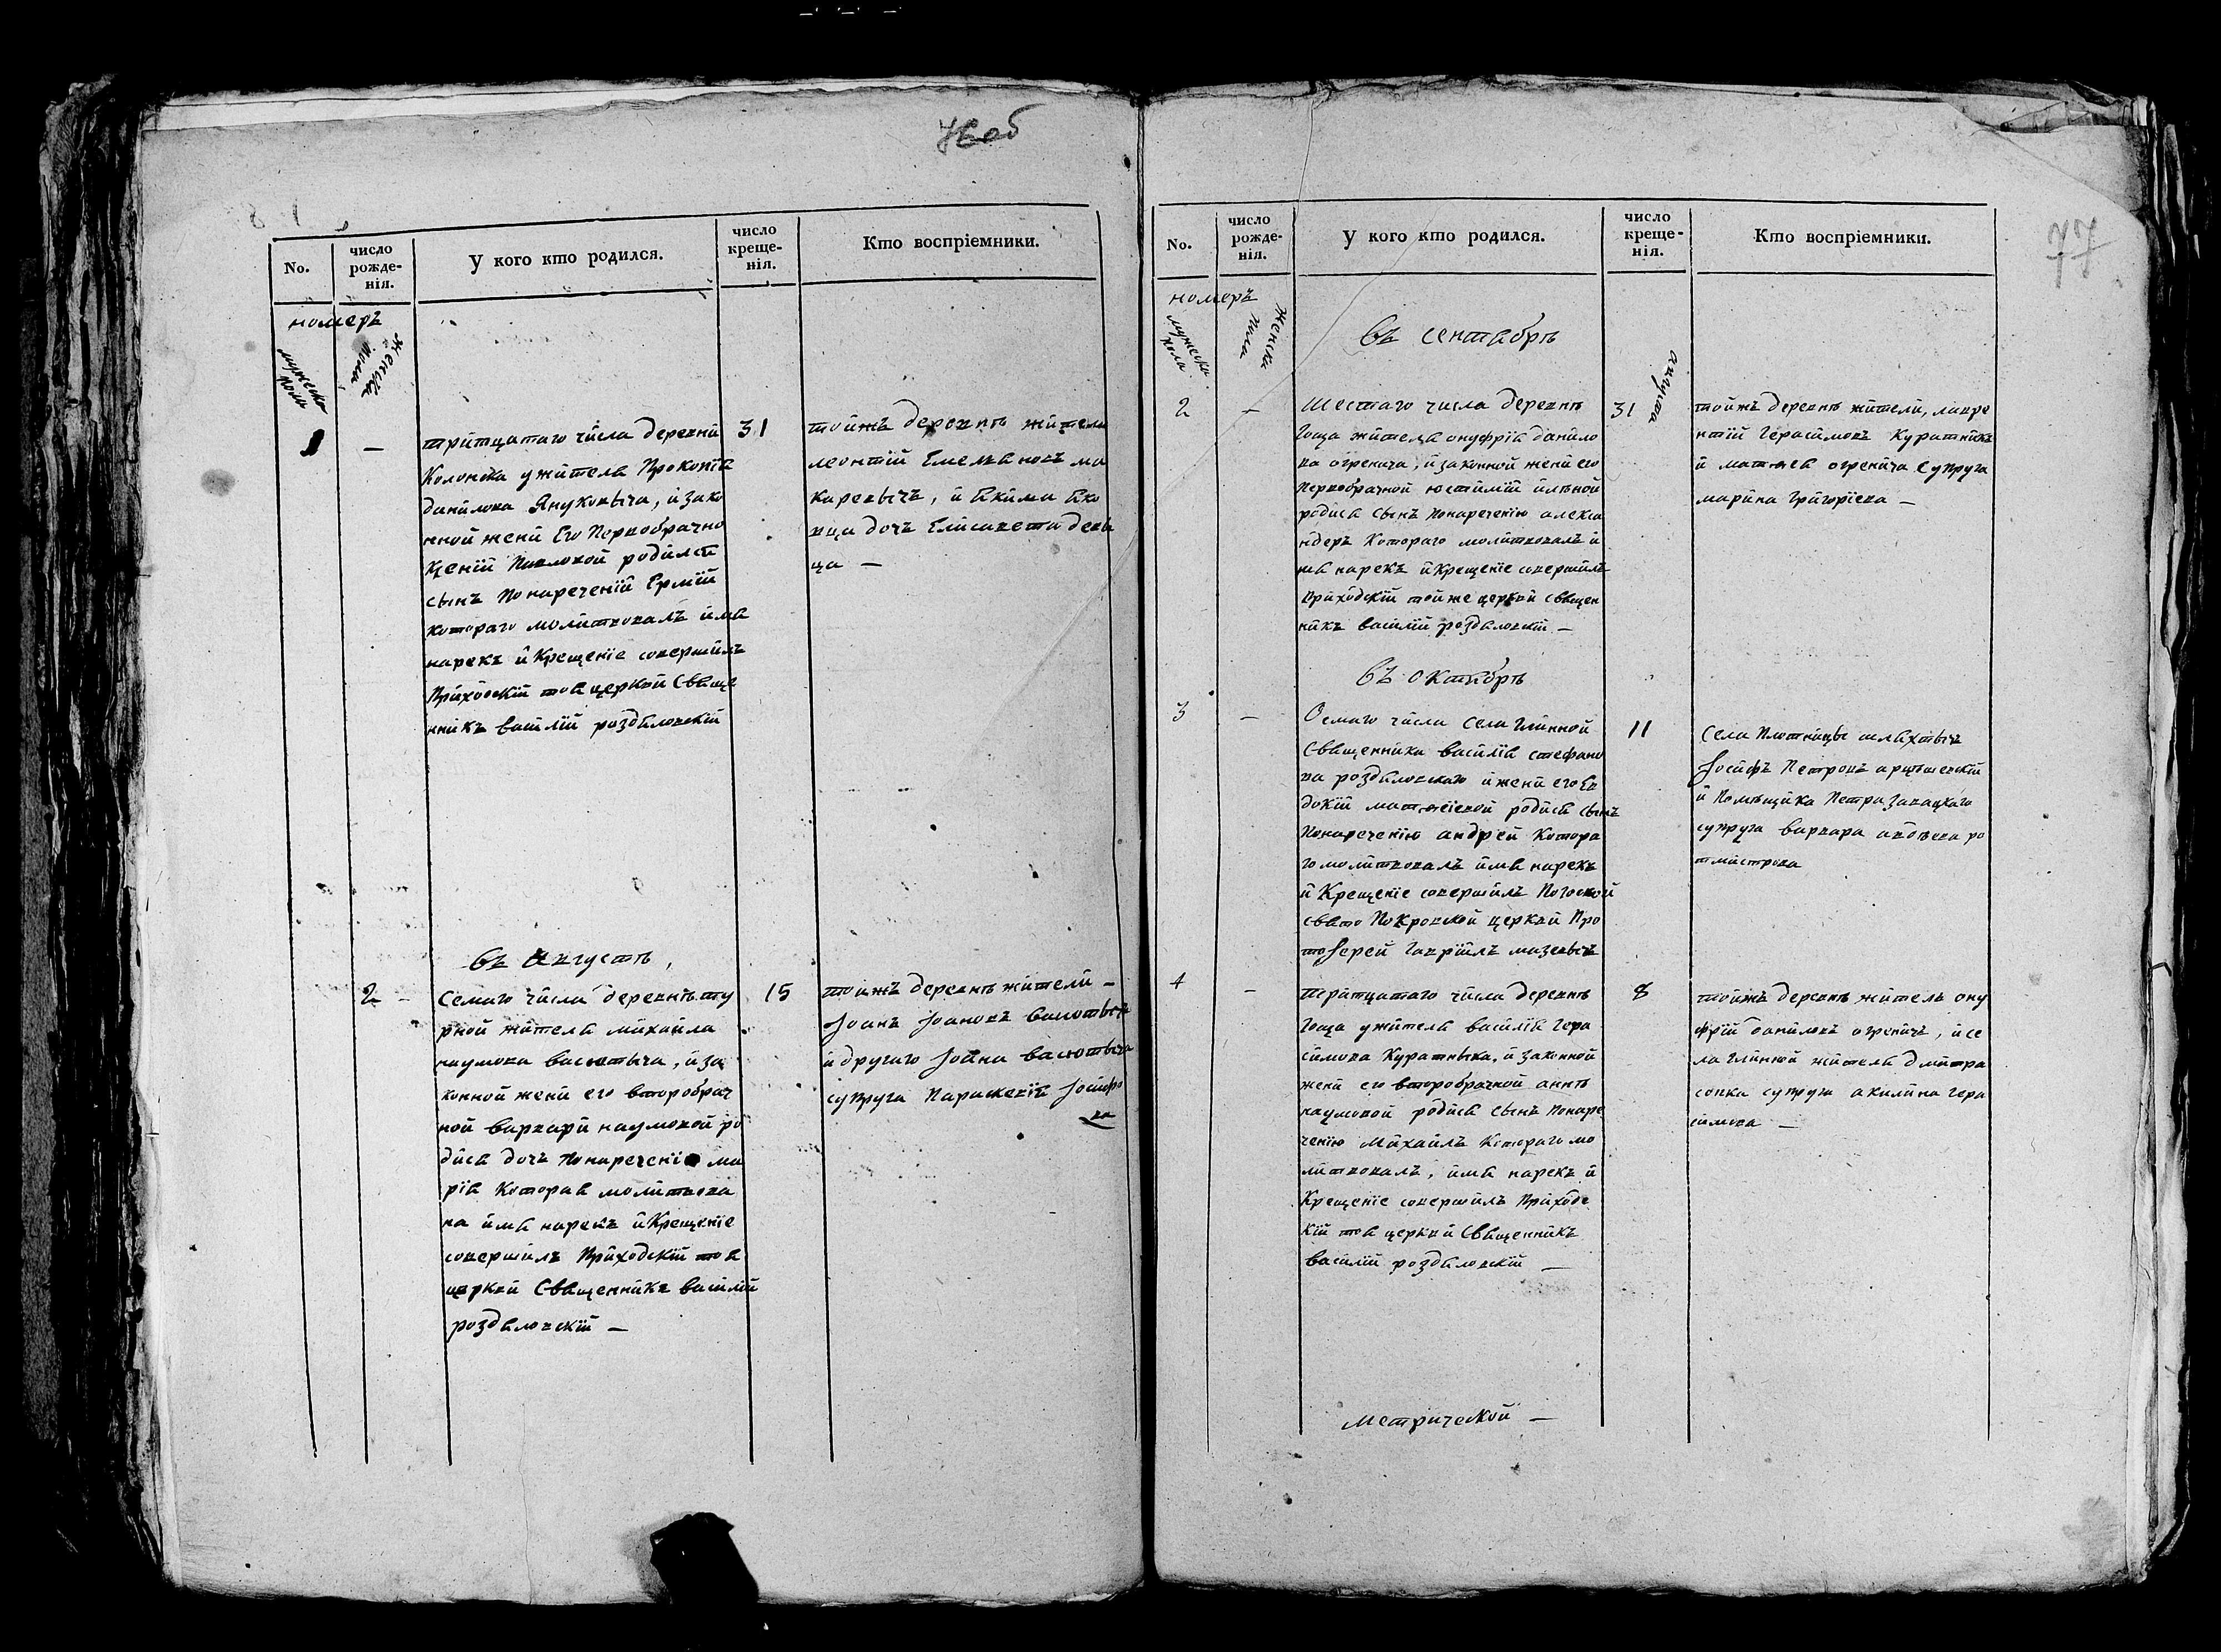 77
No.
число
рожде-
нія.
У кого кто родился.
число
креще-
нія.
Кто воспріемники.
номеръ
мужеска
пола
женска
пола
1
—
тритцатаго числа деревни
Колонска ужителя Прокопїя
данилова Януковыча, и зако
нной жени Его Первобрачно
Ксенїи Павловой родился
сынъ По нареченїи Ермїй
котораго молитвовалъ имя
нарекъ и Крещенїе совершилъ
Приходскїй тоя церкви Свяще
нникъ василїй роздяловскїй
31
тойжъ деревнѣ жители
леонтїй Емеляновъ ма
каревычъ, и якима яко
вца дочъ Елисавета деви
ца —
въ августѣ,
2 -
Семаго числа деревнѣ ту
рной жителя михайла
наумова васютыча, и за
конной жени его второбрач
ной варвари наумовой ро
дися дочъ По нареченїю ма
рїя Которая молитвова
на имя нарекъ и Крещенїе
совершилъ Приходскїй тоя
церкви Священникъ василїй
роздяловскїй —
15
тоижъ деревнѣ жители —
Іоанъ Іоановъ васютычъ
и другаго Іоана васютыча
супруга Параскевїя Іосифо
ва
77
No.
число
рожде-
нія.
У кого кто родился.
число
креще-
нія.
Кто воспріемники.
номеръ
мужеска
пола
женска
пола
въ сентябрѣ
августа
2
—
Шестаго числа деревнѣ
Гоща жителя онуфрїя данило
ва огревича, и законной жени его
Первобрачной юстимїи илѣной
родися сынъ Понареченїю алекса
ндеръ Котораго молитвовалъ и
мя нарекъ и Крещенїе совершилъ
Приходскїй тойже церкви священ
никъ василїй роздяловскїй —
31
тойжъ деревнѣ жители, лавре
нтїй Герасимовъ Куратникъ
и матѳея огревича супруга
марина Григорїева —
въ октябрѣ
3
—
Осмаго числа села Глинной
Священника василїя стефано
ва роздяловскаго и жени его Ев
докїи матѳеевой родися сынъ
Понареченїю андрей Котора
го молитвовалъ имя нарекъ
и Крещенїе совершилъ Погоской
свято Покровской церкви Про
тоІерей Гаврїилъ мазевычъ
11
Села Плотницы шляхтычъ
Іосифъ Петровъ арцышевскїй
и Помѣщика Петра завацкаго
супруга варвара
ро
тмистрова
4
—
тритцатаго числа деревнѣ
Гоща ужителя василїя Гера
симова Куратныка, и законной
жени его второбрачной аннѣ
наумовой родися сынъ Понаре
ченїю Михаилъ Котораго мо
литвовалъ, имя нарекъ и
Крещенїе совершилъ Приходс
кїй тоя церкви Священникъ
василїй роздяловскїй —
8
тойжъ деревнѣ житель ону
фрїй даниловъ огревичъ, и се
ла Глинной жителя дмитра
сопка супруга акилина Гера
симова —
Метрической —